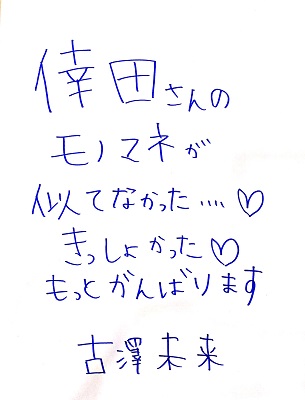 倖田さんの
モノマネが
似てなかった….♡
きっしょかった♡
もっとがんばります
古澤未来